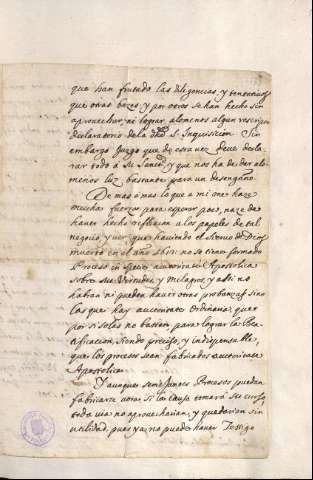 que han frutado las diligencias, y tentativas
que otras vezes, y por otros se han hecho sin
aprovechar, ni lograr alomenos algun rescripto
declaratorio de la dha S. Inquisicion. Sin
embargo juzgo que de esta vez deve decla
rar todo a Su y que nos ha de dar alo
menos luz bastante para un desengaño.
De mas a mas lo que a mi me haze
mucha fuerza para esperar poco, naze de
haver hecho reflexion a los papeles de tal
negocio, y ver, que haviendo el Siervo de Dios
muerto en el año no se tiene formado
Proceso in specie autoritate Apostolica
sobre sus Virtudes, y Milagros, y assi no
habran ni pueden haver otras probanzas sino
las que hay autoritate Ordinaria: que
por si solas no bastan para lograr la Bea
tificacion, siendo preciso, y indispensable,
que los procesos sean fabricados autoritate
Apostolica.
Y aunque semejantes Procesos puedan
fabricarse aora si la causa tomara su curso,
toda via no aprovecharian, y quedarian sin
utilidad, pues ya no puede haver Testigo